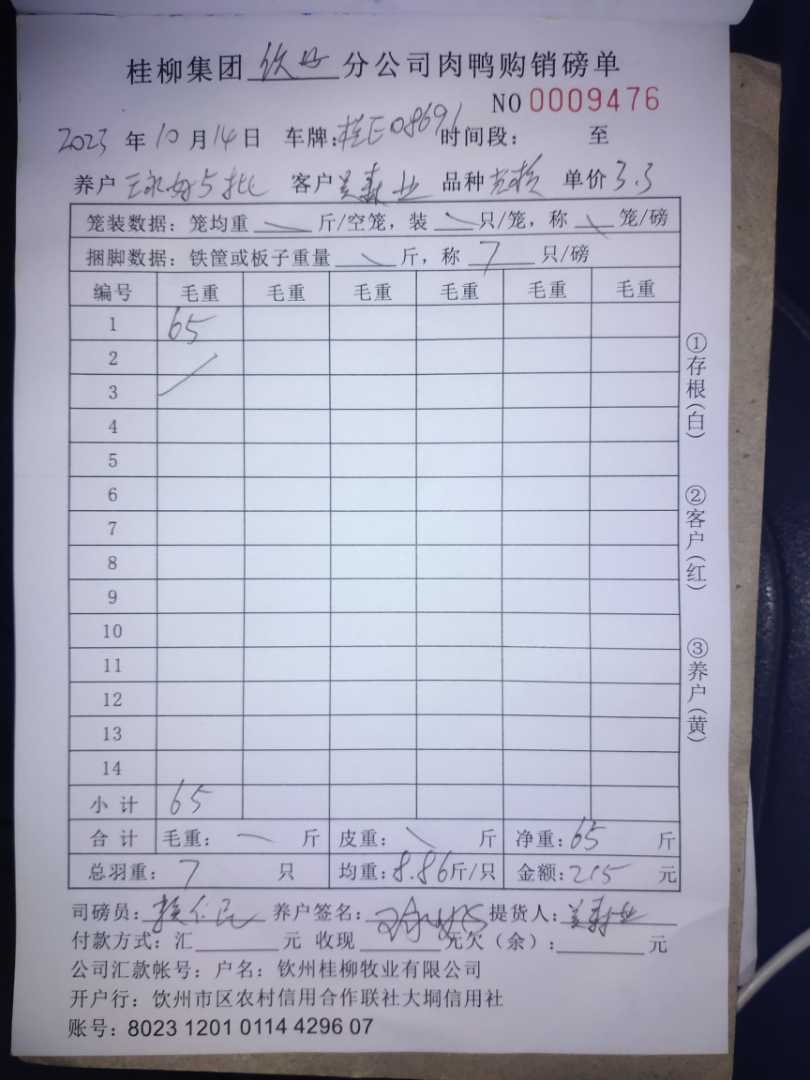 桂柳集团 钦州 分公司肉鸭购销磅单
NO 0009476
2023 年 10 月 14 日 车牌: 桂E08691 时间段: 至
养户 5批 客户 业 品种 单价 3.3
笼装数据: 笼均重 斤/空笼, 装 只/笼, 称 笼/磅
捆脚数据: 铁筐或板子重量 斤, 称 7 只/磅
编号 毛重 毛重 毛重 毛重 毛重 毛重
1 65
2
3
4
5
6
7
8
9
10
11
12
13
14
小计 65
合计 毛重: 斤 皮重: 斤 净重: 65 斤
总羽重: 7 只 均重: 8.86 斤/只 金额: 215 元
司磅员: 养户签名: 提货人:
付款方式: 汇 元 收现 元欠(余): 元
公司汇款帐号: 户名: 钦州桂柳牧业有限公司
开户行: 钦州市区农村信用合作联社大垌信用社
账号: 8023 1201 0114 4296 07
①存根(白)
②客户(红)
③养户(黄)